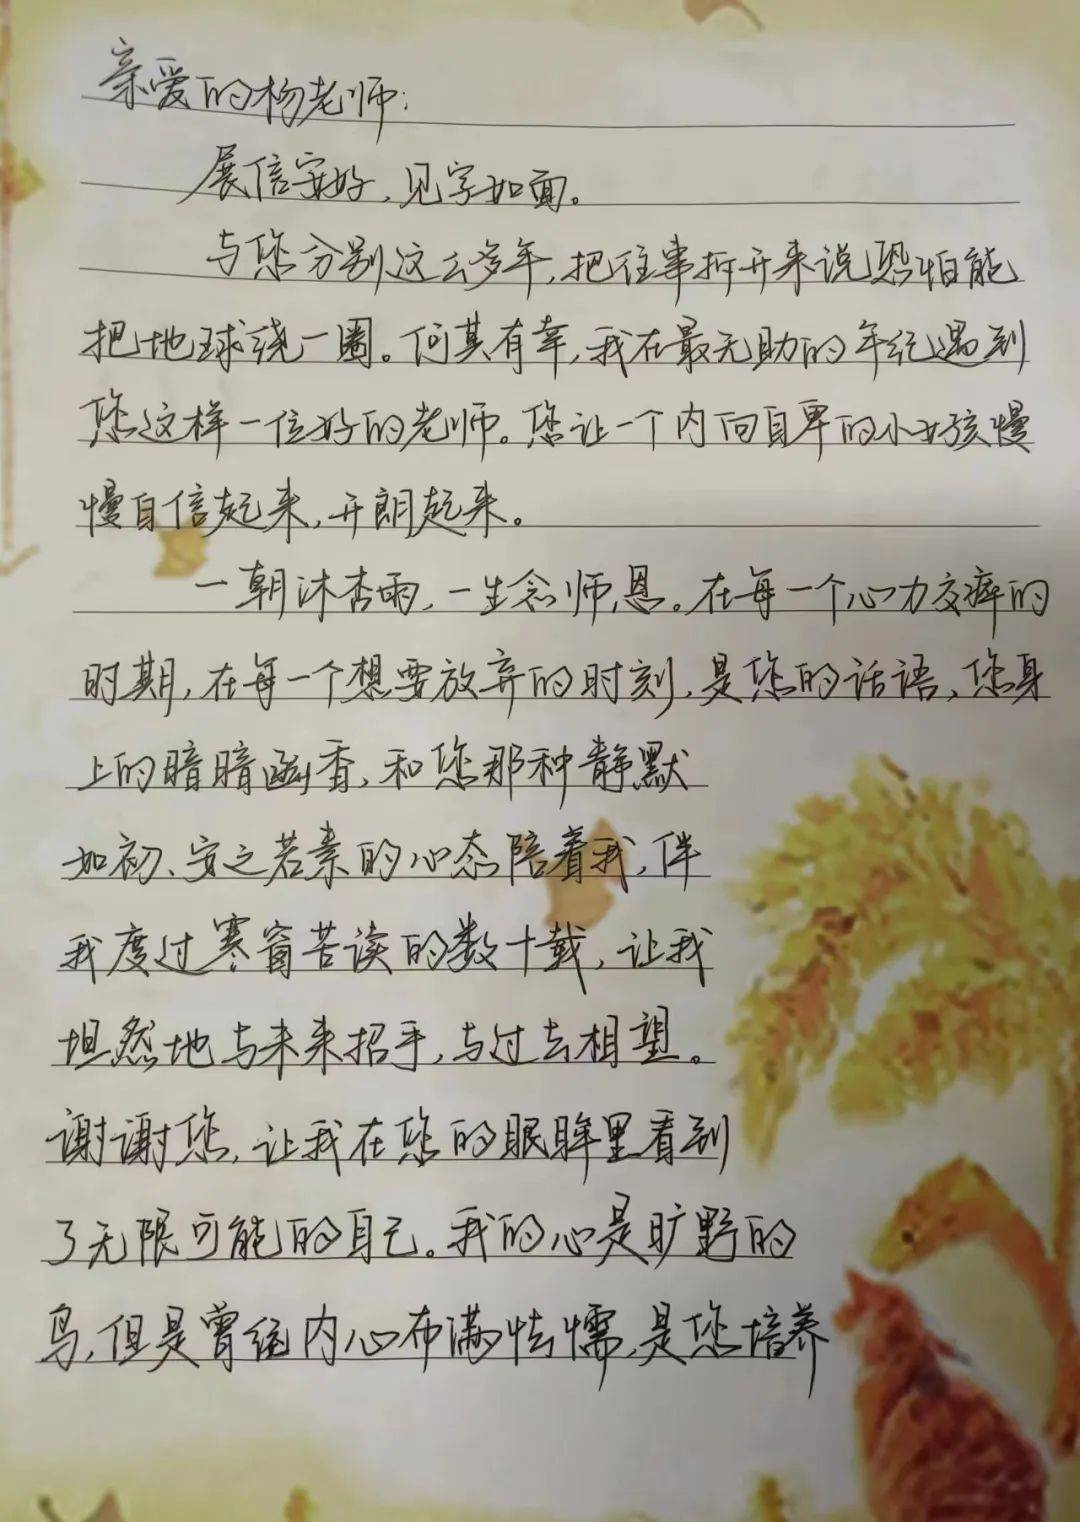 亲爱的杨老师:
展信安好,见字如面。
与您分别这么多年,把往事拆开来说恐怕能
把地球绕一圈。何其有幸,我在最无助的年纪遇到
您这样一位好的老师。您让一个内向自卑的小女孩慢
慢自信起来,开朗起来。
一朝沐杏雨,一生念师恩。在每一个心力交瘁的
时期,在每一个想要放弃的时刻,是您的话语、您身
上的暗暗幽香,和您那种静默
如初、安之若素的心态陪着我,伴
我度过寒窗苦读的数十载,让我
坦然地与未来招手,与过去相望。
谢谢您,让我在您的眼眸里看到
了无限可能的自己。我的心是旷野的
鸟,但是曾经内心布满怯懦,是您培养